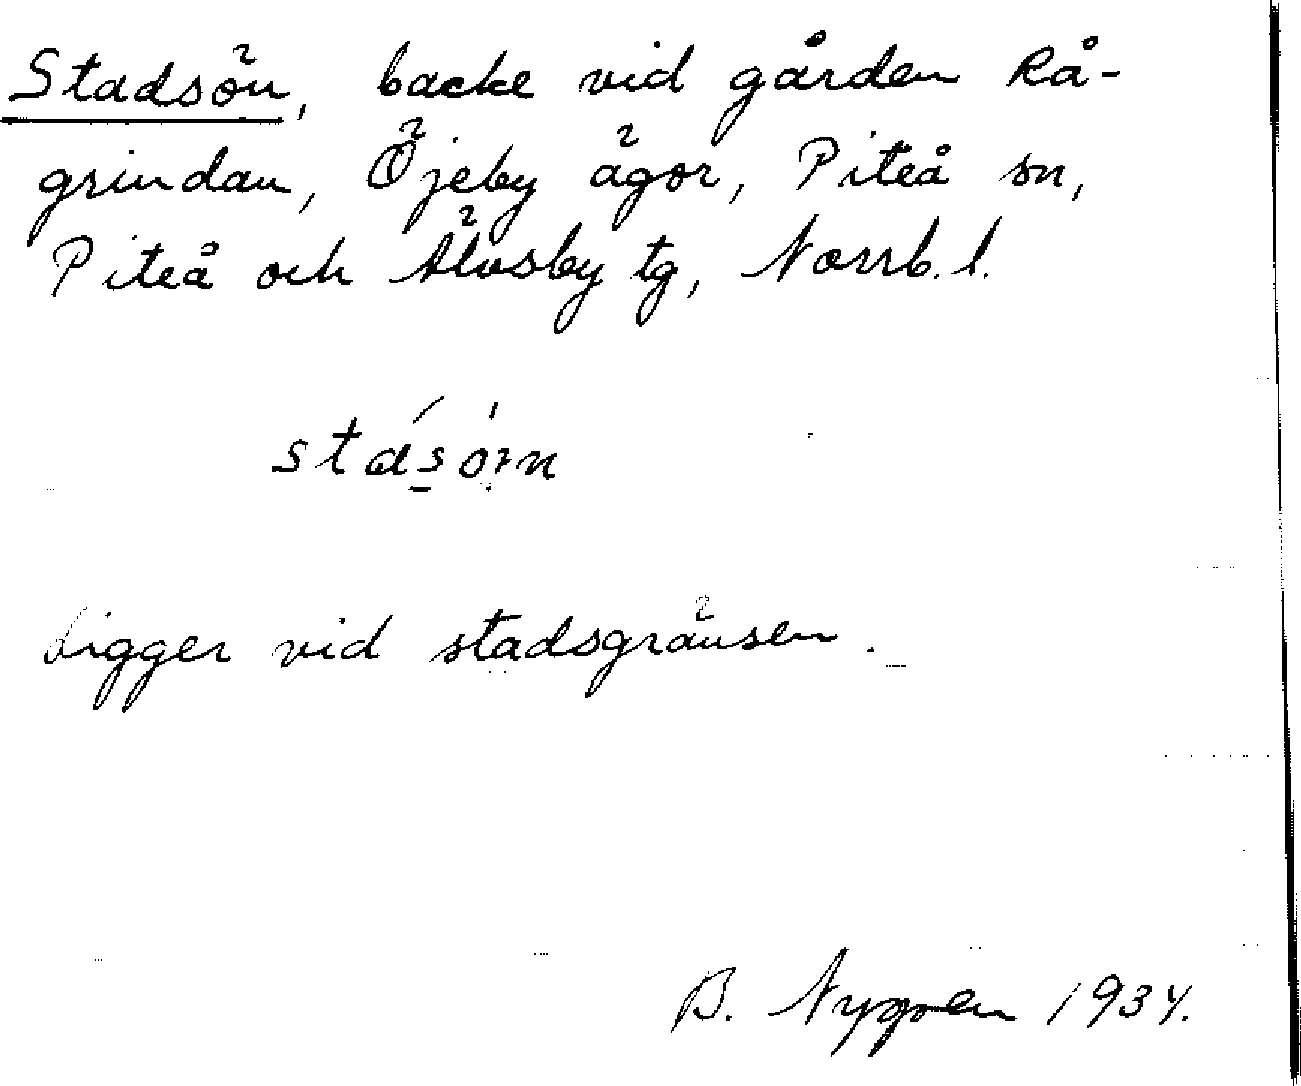 Stadsön, backe vid gården Rå-
grindan, Öjeby ägor, Piteå sn,
Piteå och Älvsby tg, Norrb. l.
Ligger vid stadsgränsen.
B. Nygren 1934.